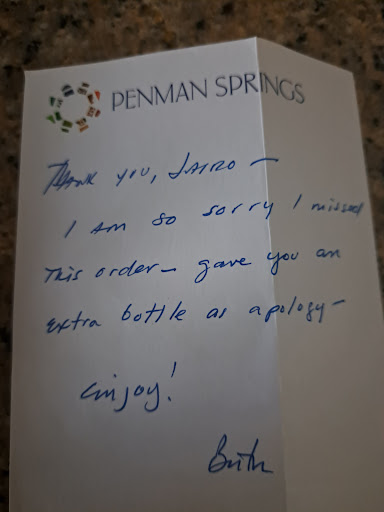 PENMAN SPRINGS
Thank you, Jairo —
I am so sorry I missed
This order — gave you an
extra bottle as apology —
Enjoy!